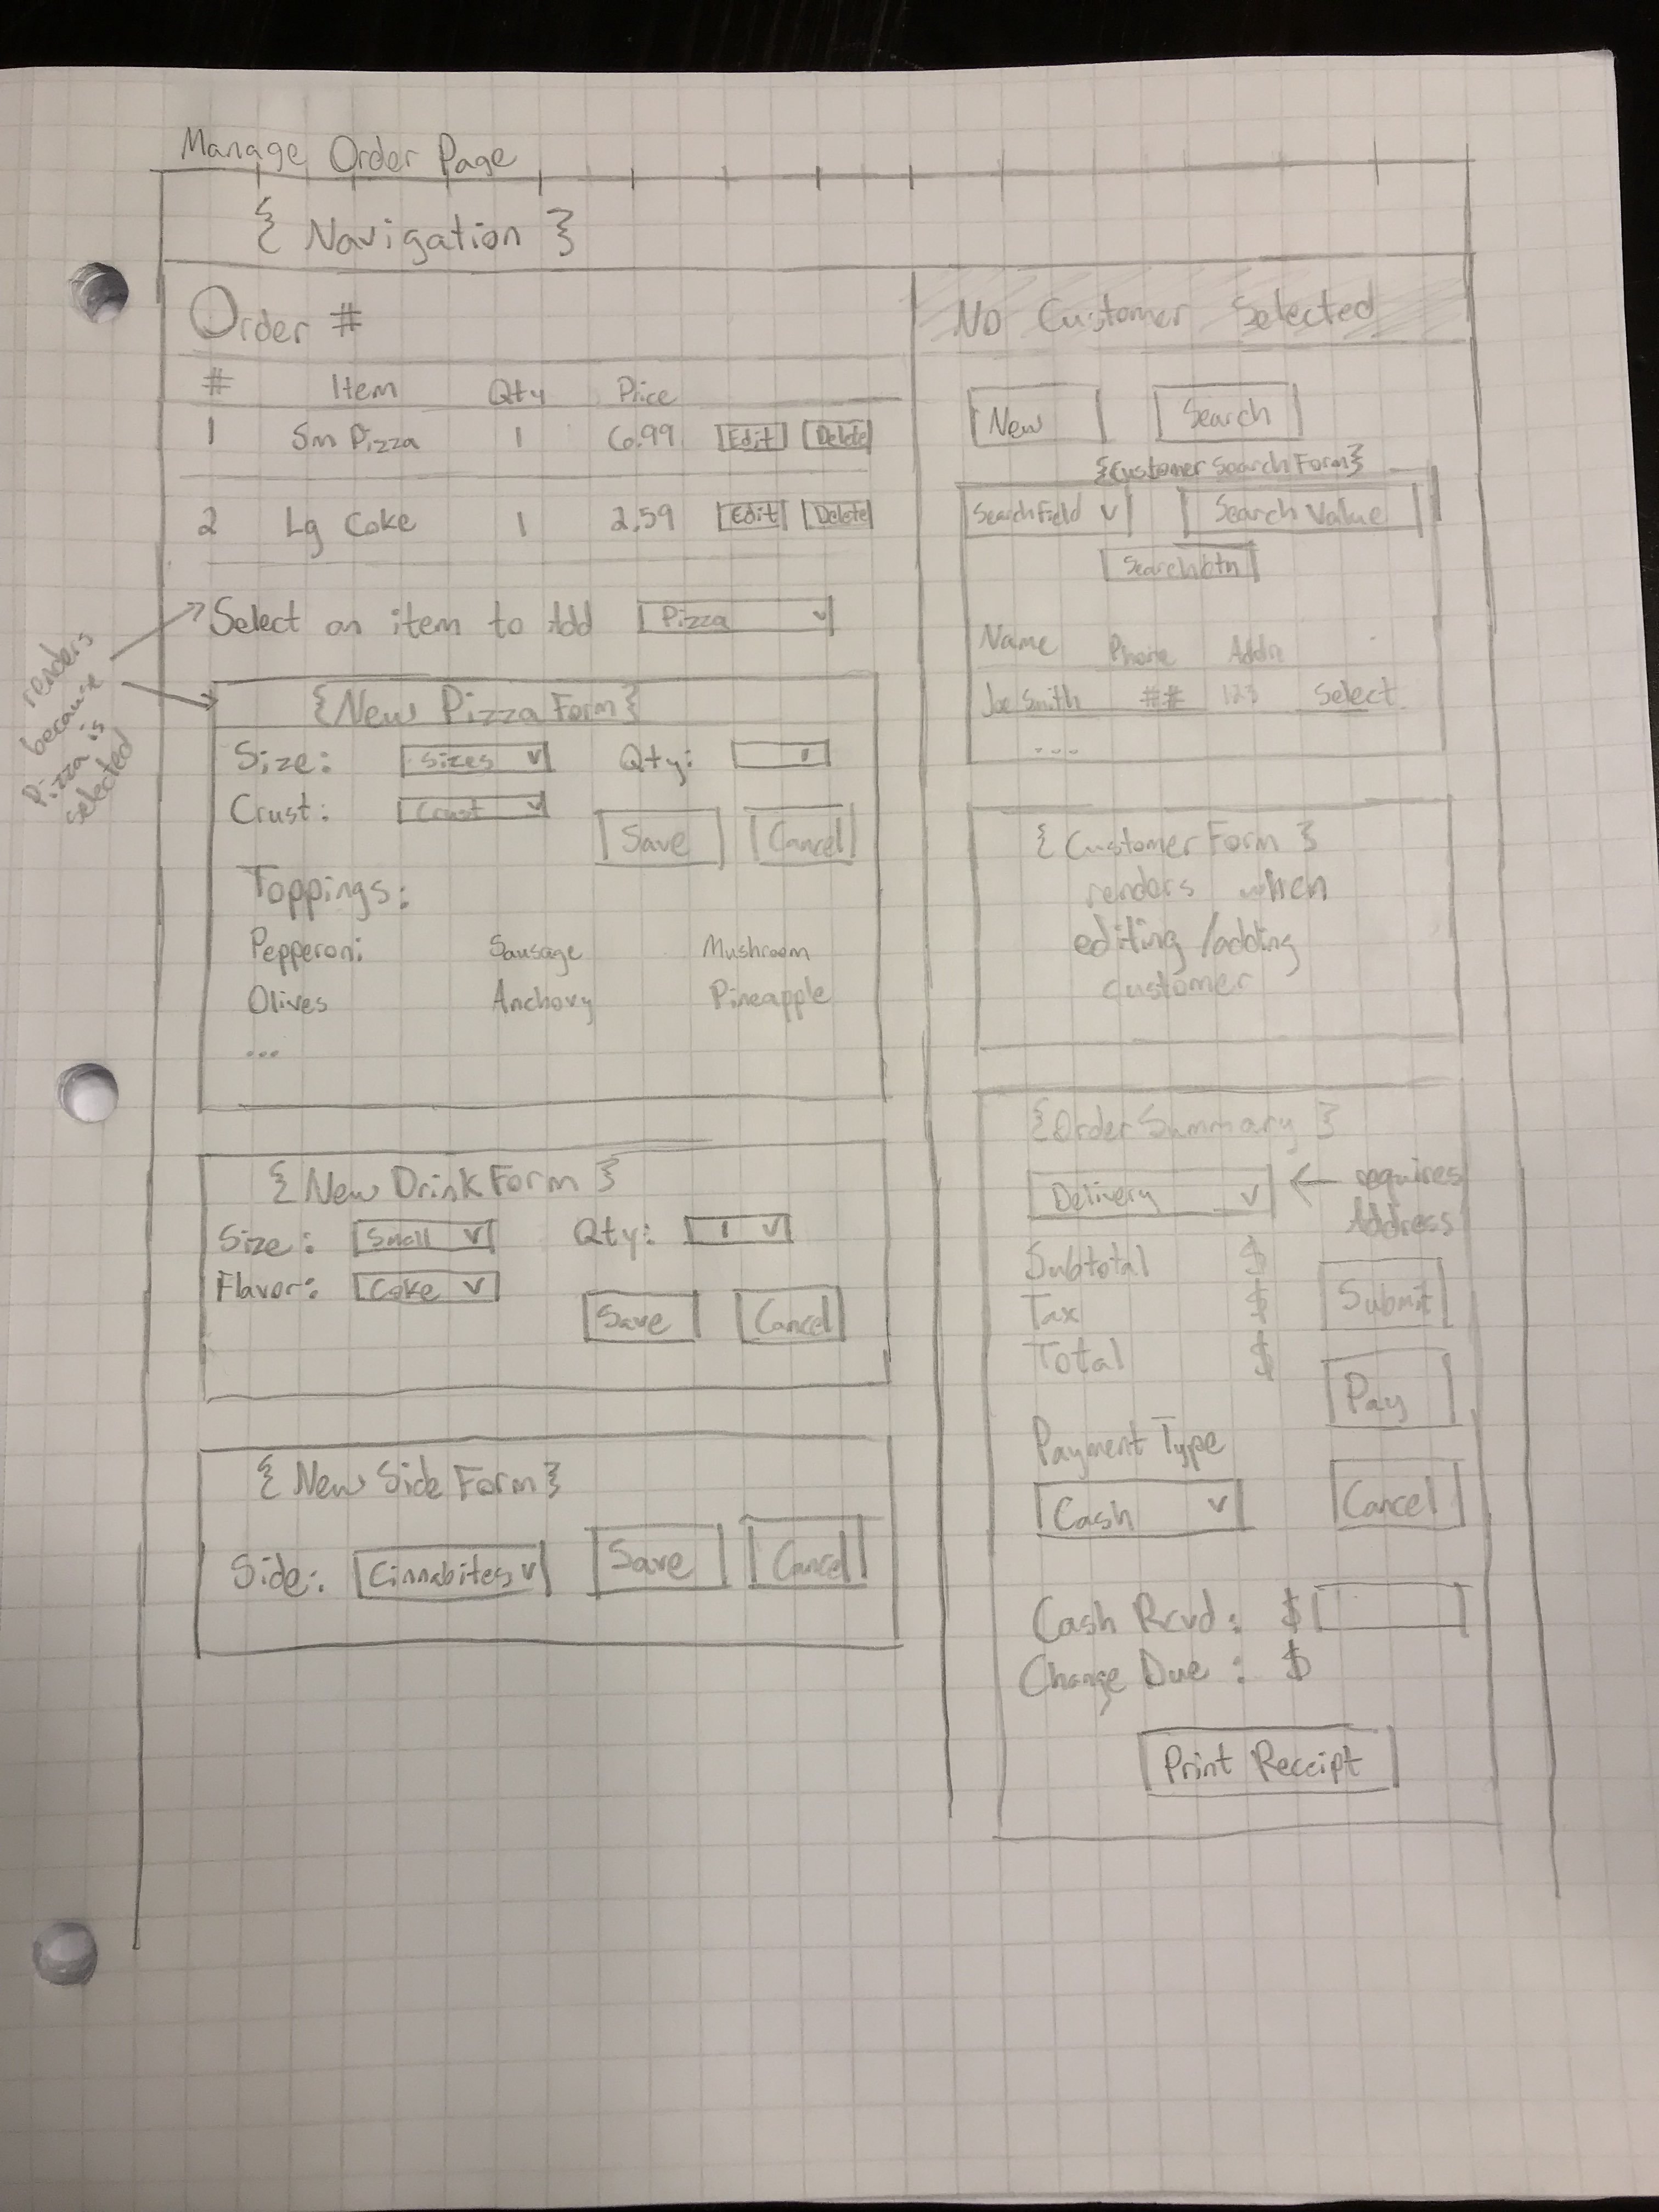 Manage Order Page
{ Navigation }
Order #
# Item Qty Price
1 Sm Pizza 1 6.99 Edit Delete
2 Lg Coke 1 2.59 Edit Delete
Select an item to Add Pizza v
renders
because
Pizza is
selected
{New Pizza Form}
Size: Sizes v Qty: 1
Crust: Crust v
Save Cancel
Toppings:
Pepperoni Sausage Mushroom
Olives Anchovy Pineapple
...
{ New Drink Form }
Size: Small v Qty: 1 v
Flavor: Coke v
Save Cancel
{ New Side Form }
Side: Cinnabites v Save Cancel
No Customer Selected
New Search
{Customer Search Form}
Search Field v Search Value
Search btn
Name Phone Addr
Joe Smith ## 123 Select
...
{ Customer Form }
renders when
editing/adding
customer
{Order Summary }
Delivery v ← requires
Address
Subtotal $
Tax $
Total $
Submit
Pay
Payment Type
Cash v
Cancel
Cash Rcvd: $
Change Due: $
Print Receipt